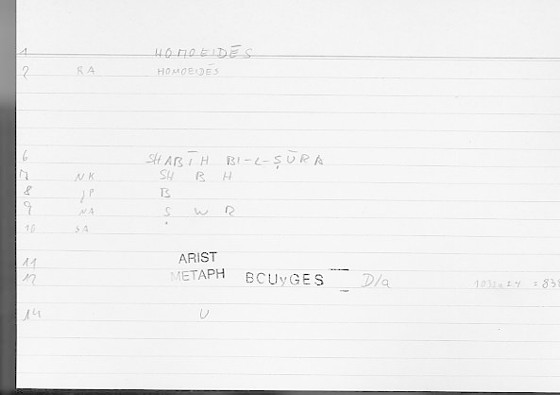 1 HOMOEIDĒS
2 RA HOMOEIDĒS
6 SHABĪH BI-L-ṢŪRA
7 NK SH B H
8 JP B
9 NA Ṣ W R
10 SA
11 ARIST
12 METAPH BCUyGES D/a = 838
14 U